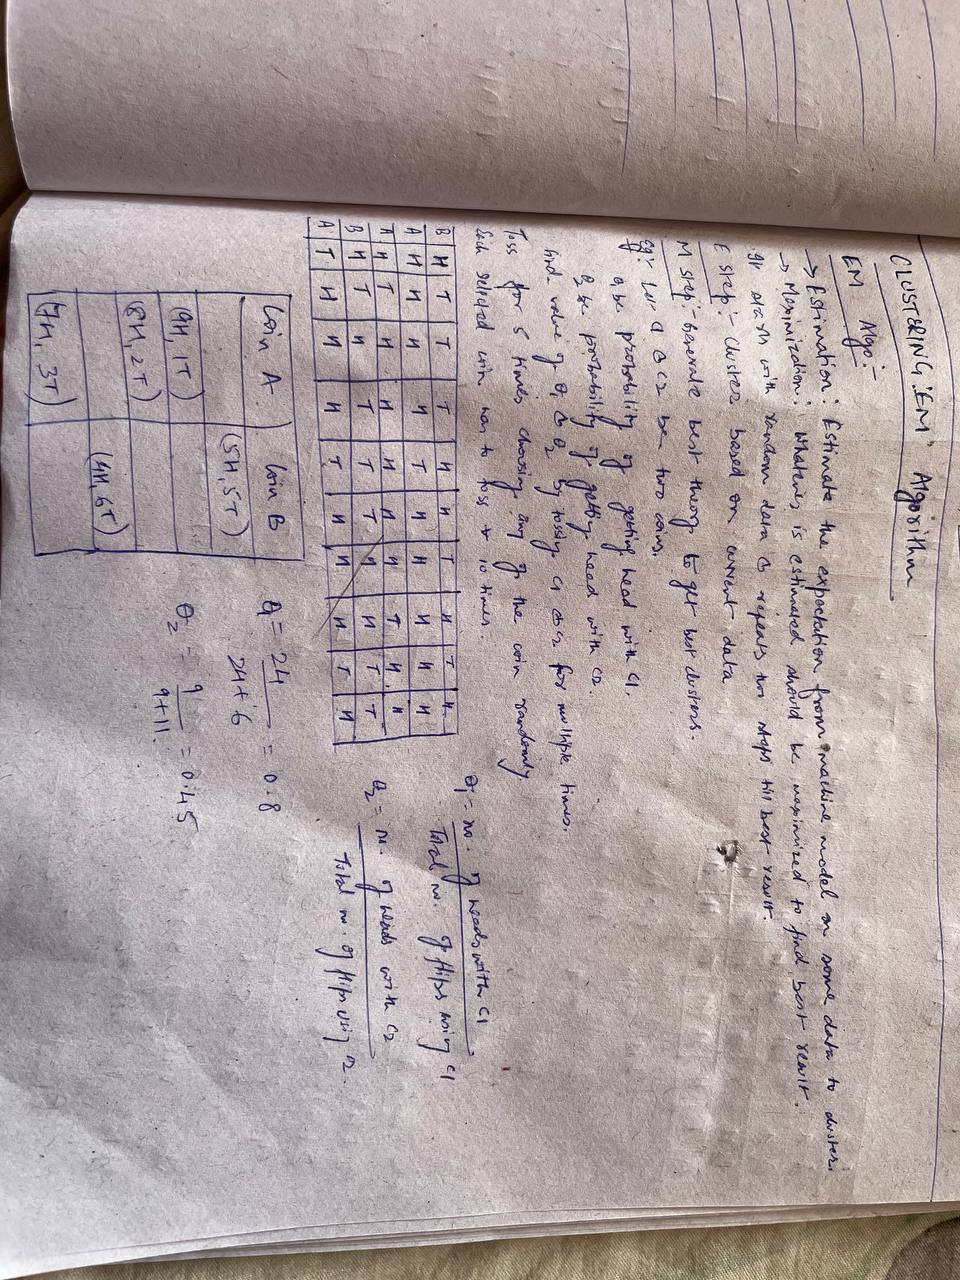 CLUSTERING: "EM" Algorithm
EM Algo:-
→ Estimation: Estimate the expectation from machine model on some data to cluster.
→ Maximization: whatever is estimated should be maximized to find best result.
It starts with random data & repeats two steps till best result.
E step:- Cluster based on current data
M step:- Generate best theory to get best clusters.
eg:- Let c1 & c2 be two coins,
θ1 be probability of getting head with c1.
θ2 be probability of getting head with c2.
find value of θ1 & θ2 by tossing c1 & c2 for multiple times.
Toss for 5 times choosing any of the coin randomly
Each selected coin has to toss 10 times.
B H T T T H H T H T H
A H H H H T H H H H H
A H T H H H H H T H H
B H T H T T T H H T T
A T H H H T H H H T H
θ1 = no. of heads with c1
Total no. of flips using c1
θ2 = no. of heads with c2
Total no. of flips using 2.
Coin A Coin B
(5H, 5T)
(9H, 1T)
(8H, 2T)
(4H, 6T)
(7H, 3T)
θ1 = 24 = 0.8
24+6
θ2 = 9 = 0.45
9+11.